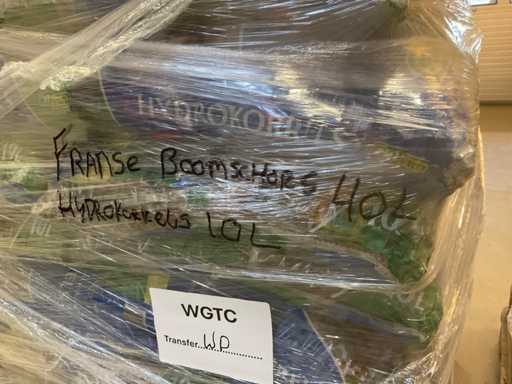 HYDROKORRELS
FRANSE BOOMSCHORS 40L
HYDROKORRELS 10L
WGTC
Transfer...W.P...............